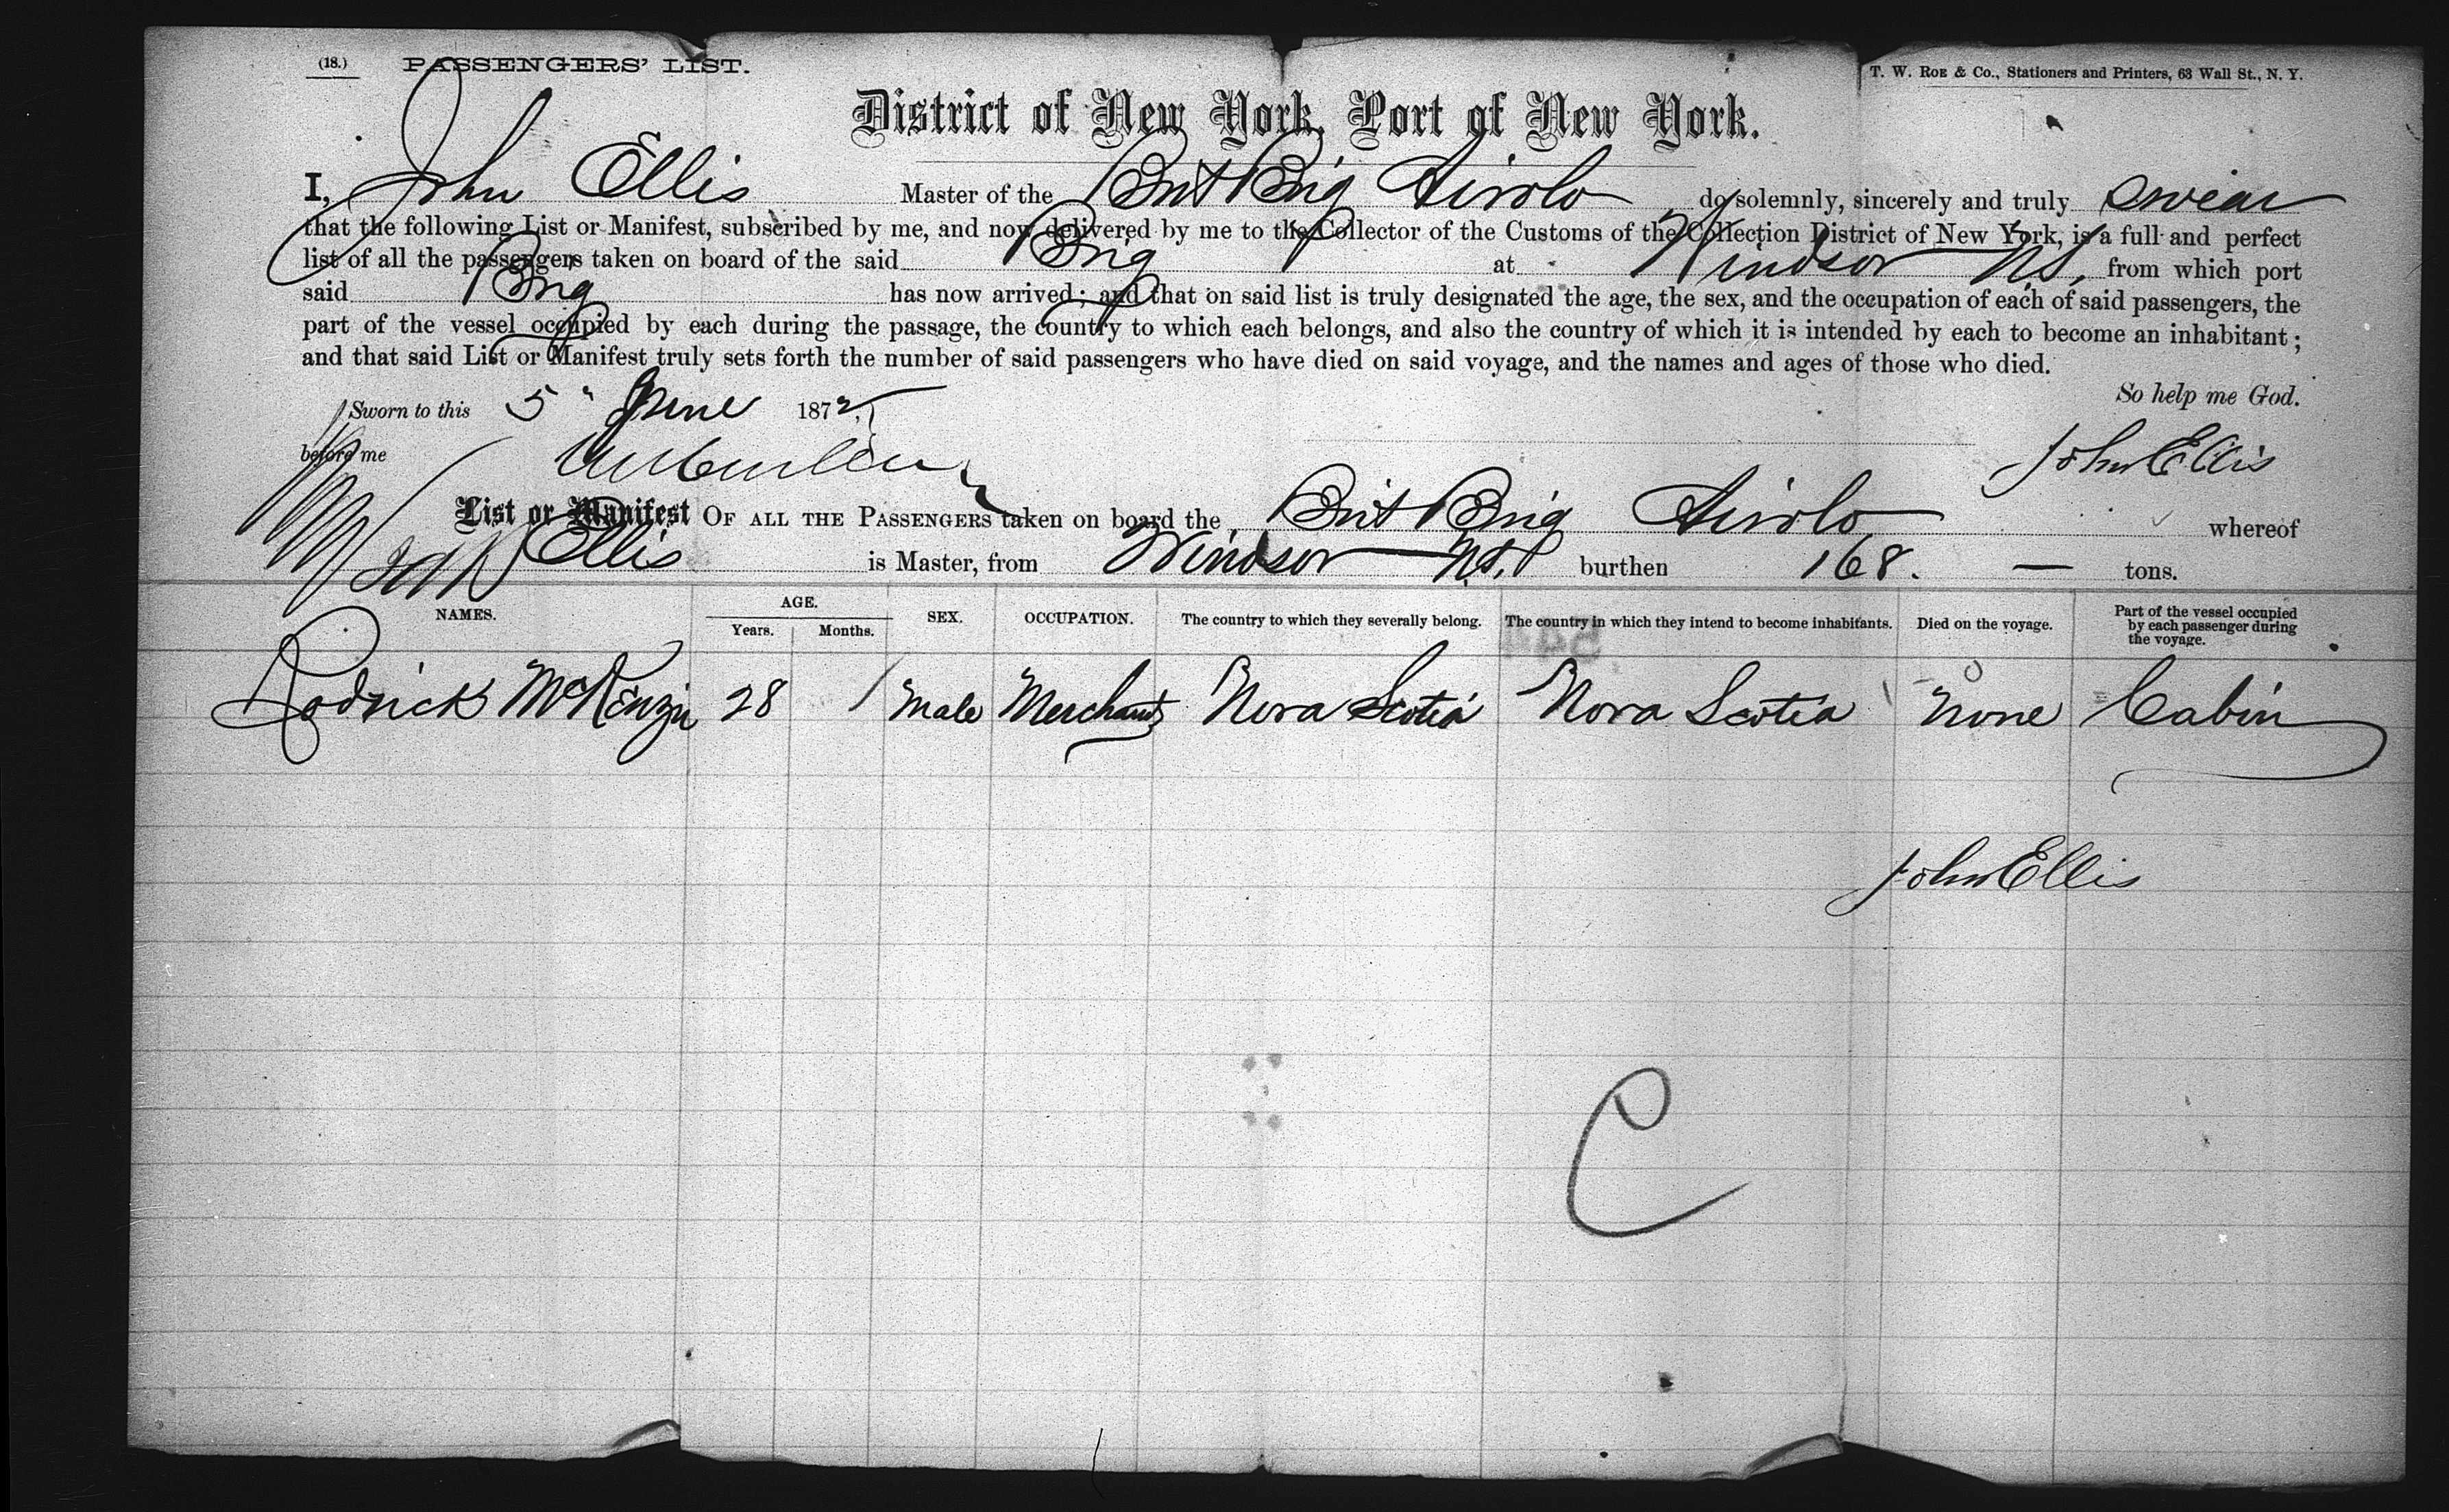 (18.) PASSENGERS' LIST. T. W. Roe & Co., Stationers and Printers, 63 Wall St., N. Y.
District of New York, Port of New York.
I, John Ellis Master of the Brit Brig Airolo do solemnly, sincerely and truly swear
that the following List or Manifest, subscribed by me, and now delivered by me to the Collector of the Customs of the Collection District of New York, is a full and perfect
list of all the passengers taken on board of the said Brig at Windsor N.S. from which port
said Brig has now arrived; and that on said list is truly designated the age, the sex, and the occupation of each of said passengers, the
part of the vessel occupied by each during the passage, the country to which each belongs, and also the country of which it is intended by each to become an inhabitant;
and that said List or Manifest truly sets forth the number of said passengers who have died on said voyage, and the names and ages of those who died.
So help me God.
Sworn to this 5" June 1872
before me
John Ellis
List or Manifest OF ALL THE PASSENGERS taken on board the Brit Brig Airolo whereof
Ellis is Master, from Windsor N.S. burthen 168. — tons.
NAMES. AGE. SEX. OCCUPATION. The country to which they severally belong. The country in which they intend to become inhabitants. Died on the voyage. Part of the vessel occupied by each passenger during the voyage.
Years. Months.
Rodrick McKenzie 28 / Male Merchant Nova Scotia Nova Scotia None Cabin
John Ellis
C